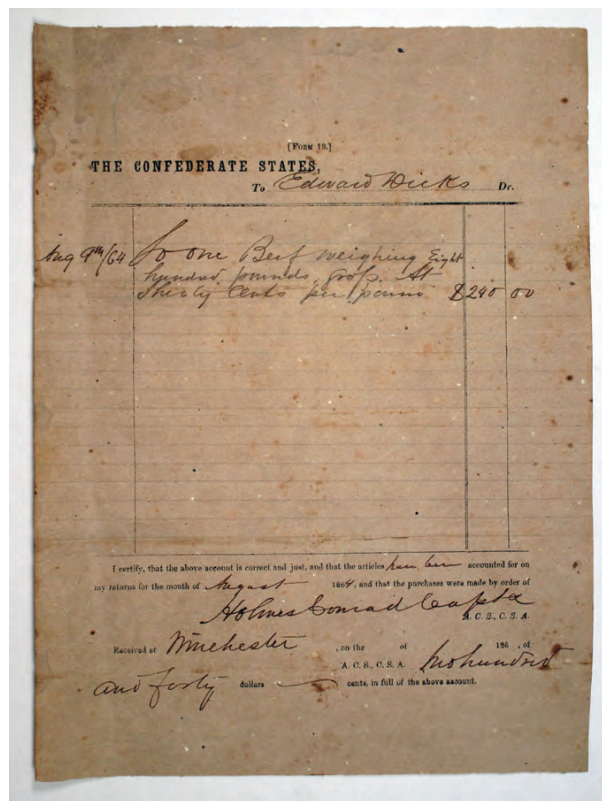 [FORM 19.]
THE CONFEDERATE STATES,
To Edward Dicks Dr.
Aug 9th/64 To one Beef weighing Eight
hundred pounds gross. At
Thirty Cents per pound $240 00
I certify, that the above account is correct and just, and that the articles have been accounted for on
my returns for the month of August 1864, and that the purchases were made by order of
Holmes Conrad Capt &
A. C. S., C. S. A.
Received at Winchester , on the of 186 , of
A. C. S., C. S. A. Two hundred
and forty dollars cents, in full of the above account.